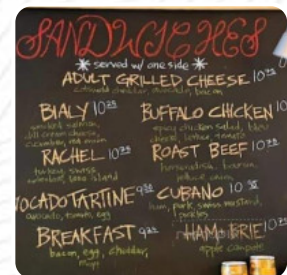 SANDWICHES
* served w/ one side *
ADULT GRILLED CHEESE 10
cheddar, avocado, bacon
BIALY 10
smoked salmon,
dill cream cheese,
cucumber, red onion
BUFFALO CHICKEN 10
spicy chicken salad, bleu
cheese, lettuce, tomato
RACHEL 10
turkey, swiss
coleslaw, 1000 island
ROAST BEEF 10
horseradish,
OCADO TARTINE 9
avocado, tomato, egg
CUBANO 10
ham, pork, swiss, mustard,
pickles
BREAKFAST 9
bacon, egg, cheddar,
mayo
HAM & BRIE 10
apple compote